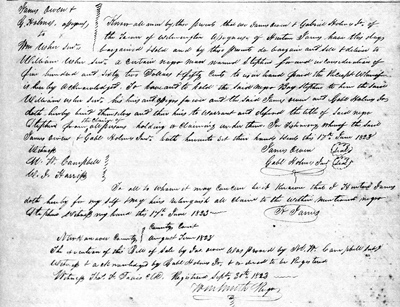 James Owen &
G. Holmes, assignees
to
Wm Usher Senr.
Know all men by these presents that we James Owen & Gabriel Holmes Jr. of
the Town of Wilmington assignees of Hinton James have this day
bargained & sold and by this presents do bargain and sell & deliver to
William Usher Senr. a certain negro man named Stephen for and in consideration of
One hundred and sixty two Dollars & fifty Cents to us in hand paid the receipt whereof
is hereby acknowledged. To have and to hold the said Negro Boy Stephen to him the said
William Usher Senr. his heirs and assigns forever and the said James Owen and Gabl Holmes Jr.
doth hereby bind themselves and their heirs to Warrant and defend the title of said negro
Stephen from all persons holding or claiming under them In testimony whereof the said
James Owen & Gabl Holmes Jr. hath hereunto set their hands this 17th June 1823
Witness
James Owen (Seal)
M. W. Campbell
Gabl Holmes Jr (Seal)
W. J. Harriss
To all whom it may concern be it known that I Hinton James
doth hereby for my self & my heirs relinquish all claim to the within mentioned negro
Stephen witness my hand this 17th June 1823
H. James
New Hanover County
County Court
August Term 1823
The execution of this Bill of Sale by Jas Owen was proved by M. W. Campbell
Witness & acknowledged by Gabl Holmes Jr. & ordered to be Registered
Witness Thos. F. Davis Clk. Registered Septr. 30th 1823
Register